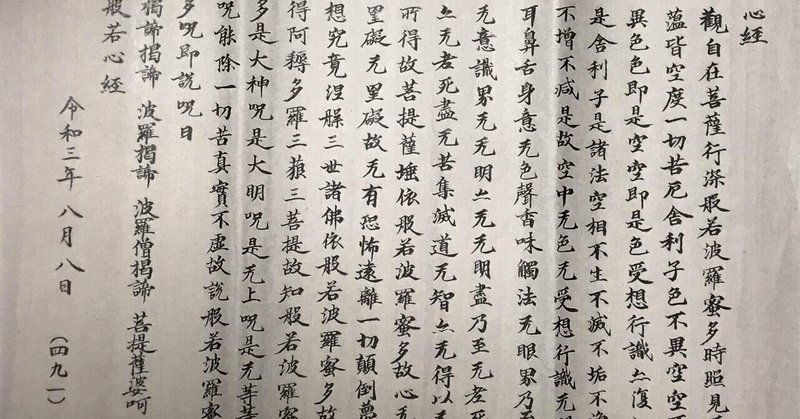 心経
觀自在菩薩行深般若波羅蜜多時照見
蘊皆空度一切苦厄舍利子色不異空空
異色色即是空空即是色受想行識亦復
是舍利子是諸法空相不生不滅不垢不淨
不增不減是故空中无色无受想行識无
耳鼻舌身意无色聲香味觸法无眼界乃至
无意識界无无明亦无无明盡乃至无老死
亦无老死盡无苦集滅道无智亦无得以无
所得故菩提薩埵依般若波羅蜜多故心无
罣礙无罣礙故无有恐怖遠離一切顛倒夢
想究竟涅槃三世諸佛依般若波羅蜜多故
得阿耨多羅三藐三菩提故知般若波羅
多是大神呪是大明呪是无上呪是无等等
呪能除一切苦真實不虛故說般若波羅蜜
多呪即説呪曰
揭諦揭諦 波羅揭諦 波羅僧揭諦 菩提薩婆呵
般若心経
令和三年八月八日 (四九一)